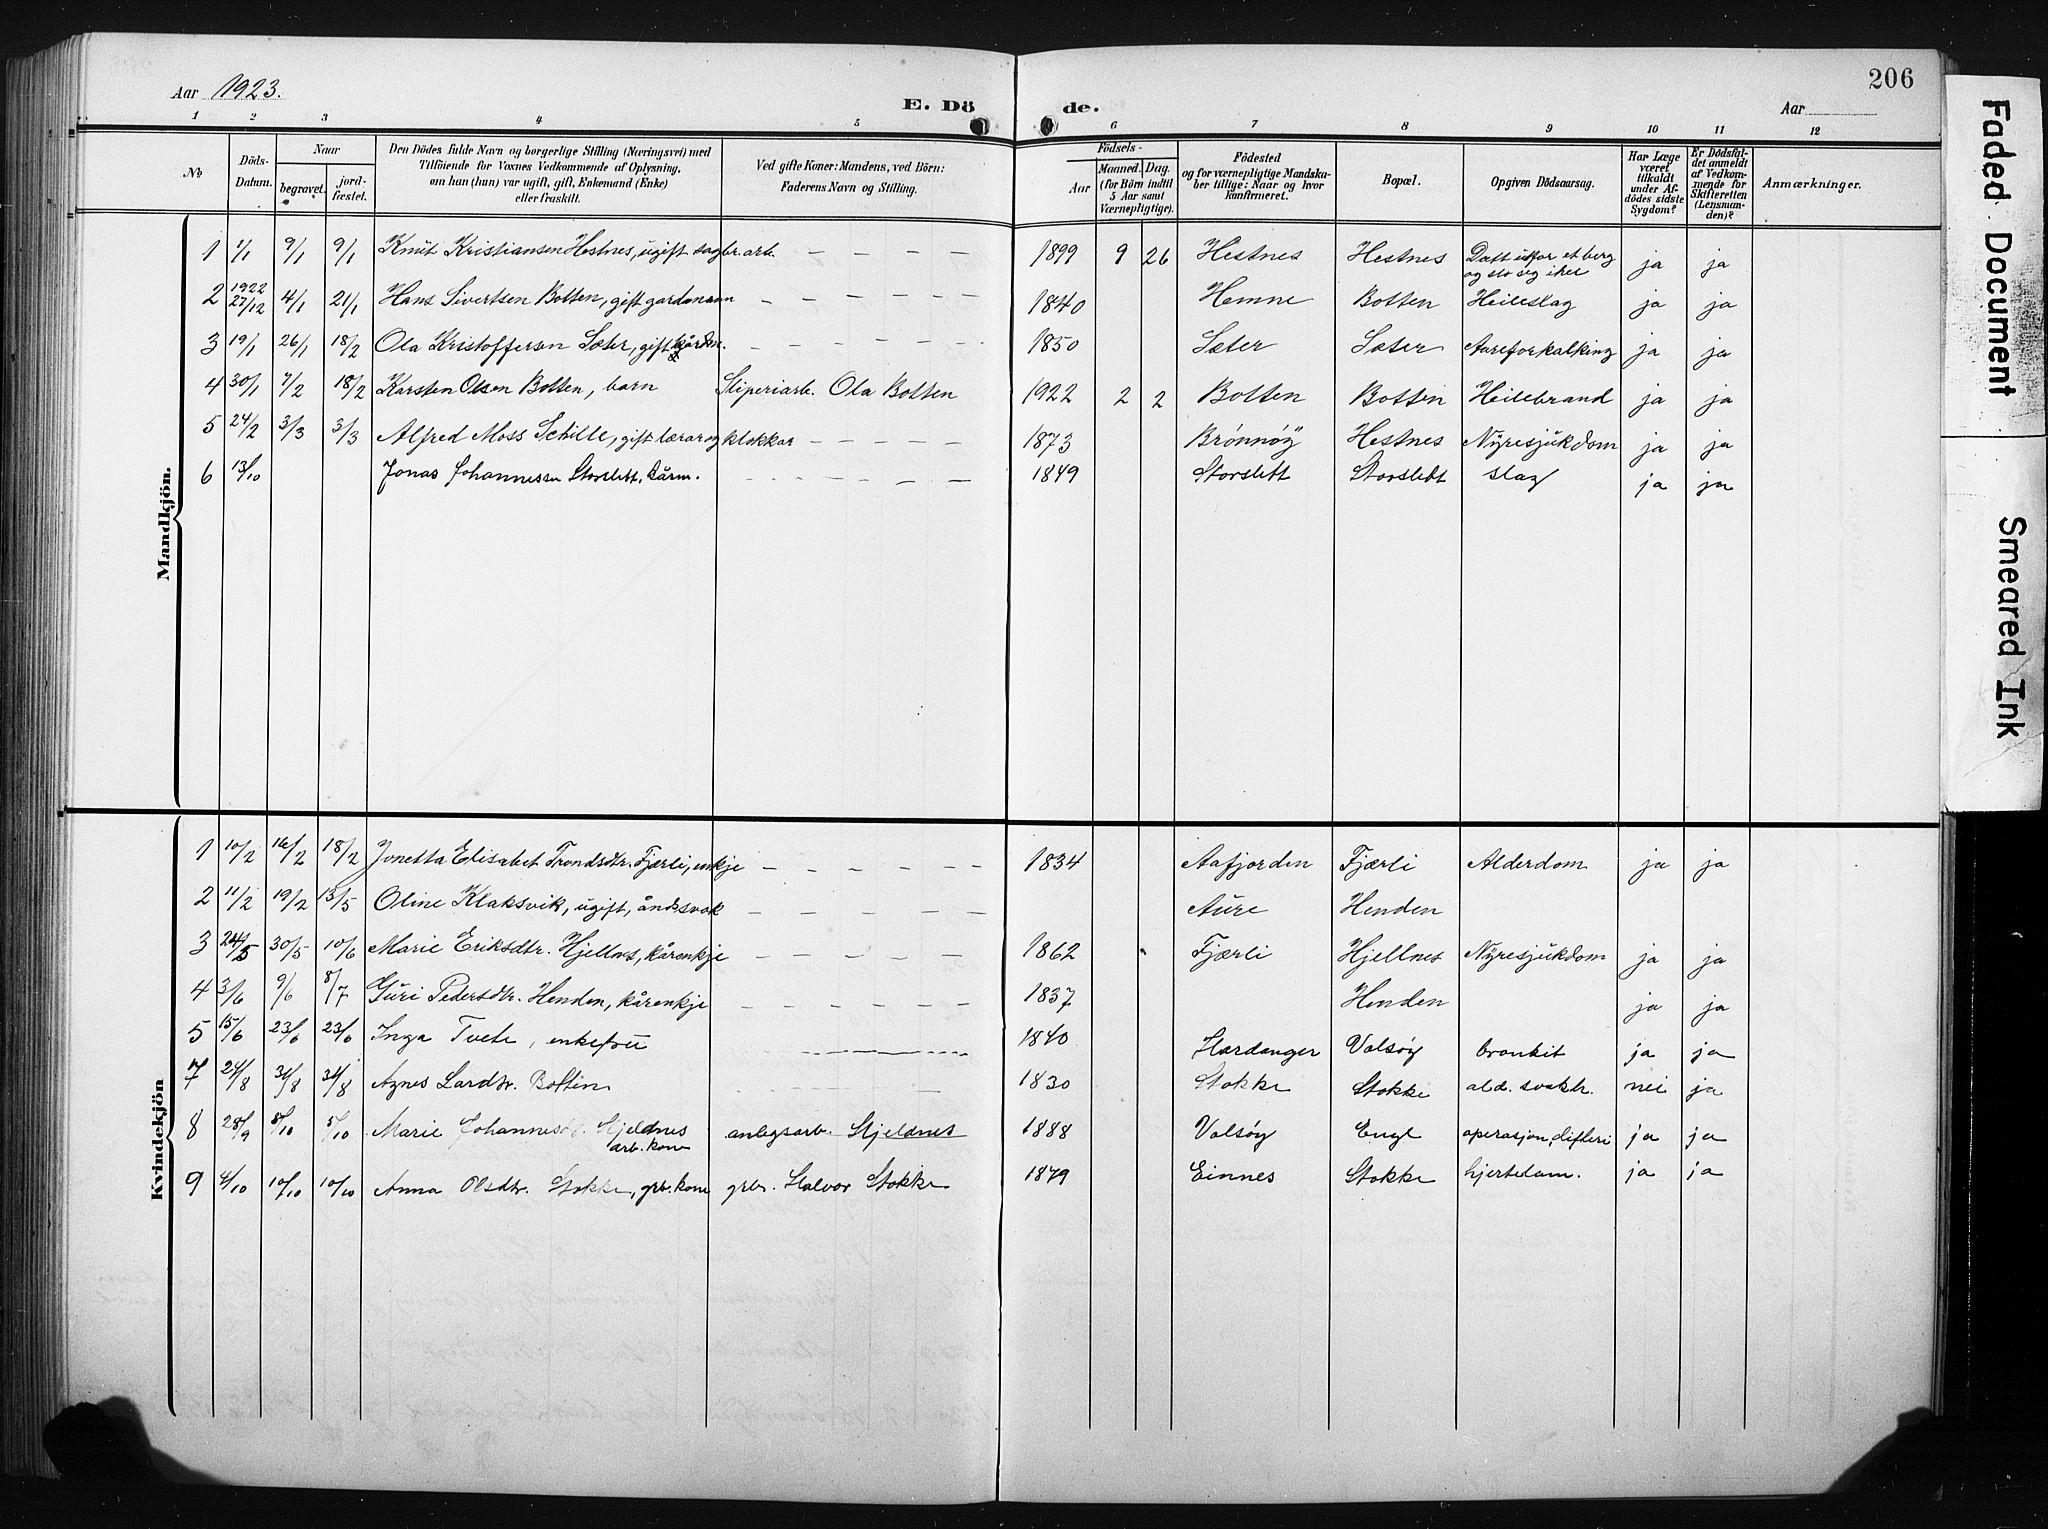 Aar 1923.
E. Döde.
Aar
206
1 2 3 4 5 6 7 8 9 10 11 12
No
Döds-Datum.
Naar
begravet.
jord-fæstet.
Den Dödes fulde Navn og borgerlige Stilling (Næringsvei) med
Tilföiende for Voxnes Vedkommende af Oplysning,
om han (hun) var ugift, gift, Enkemand (Enke)
eller fraskilt.
Ved gifte Koner: Mandens, ved Börn:
Faderens Navn og Stilling.
Födsels-
Aar
Maaned. Dag.
(for Börn indtil
5 Aar samt
Værnepligtige).
Födested
og for værnepligtige Mandska-
ber tillige: Naar og hvor
konfirmeret.
Bopæl.
Opgiven Dödsaarsag.
Har Læge
været
tilkaldt
under Af-
dödes sidste
Sygdom?
Er Dödsfal-
det anmeldt
af Vedkom-
mende for
Skifteretten
(Lensman-
den)?
Anmærkninger.
Mandkjön.
1 1/1 9/1 9/1 Knut Kristiansen Hestnes, ugift sagbr. arb. – – – – 1899 9 26 Hestnes Hestnes Datt utfor et berg og slo seg ihel ja ja
2 1922 27/12 4/1 21/1 Hans Sivertsen Botten, gift gardmann – – – – – 1840 Hemne Botten Heileslag ja ja
3 19/1 26/1 18/2 Ola Kristoffersen Sæter, gift kårdm. – – – – – 1850 Sæter Sæter Aareforkalking ja ja
4 30/1 7/2 18/2 Karsten Olsen Botten, barn Sliperiarb. Ola Botten 1922 2 2 Botten Botten Heilebrand ja ja
5 24/2 3/3 3/3 Alfred Moss Schille, gift lærar og klokkar – – – – 1873 Brönnöy Hestnes Nyresjukdom ja ja
6 13/10 Jonas Johannessen Storslett, kårm. – – – – – 1849 Storslett Storslett slag ja ja
Kvindekjön
1 10/2 16/2 18/2 Jonetta Elisabet Trondsdtr. Fjærli, enkje – – – – – – 1834 Aafjorden Fjærli Alderdom ja ja
2 11/2 19/2 13/5 Oline Klaksvik, ugift, åndsvak – – – – – – Aure Henden
3 24/5 30/5 10/6 Marie Eriksdtr. Hjellnes, kårenkje – – – – – – 1862 Fjærli Hjellnes Nyresjukdom ja ja
4 3/6 9/6 8/7 Guri Pedersdtr. Henden, kårenkje – – – – – – 1837 Henden ja ja
5 15/6 23/6 23/6 Inga Tveten, enkefru – – – – 1840 Hardanger Valsöy bronkit ja ja
7 24/8 31/8 31/8 Agnes Larsdtr. Bottin – – – – 1830 Stokke Stokke ald. svakh. nei ja
8 28/9 5/10 5/10 Marie Johannesd. Hjeldnes arb. kone anlegsarb. Hjeldnes 1888 Valsöy Engl operasjon, difteri ja ja
9 4/10 10/10 10/10 Anna Olsdtr. Stokke, grbr. kone grbr. Halvor Stokke 1879 Einnes Stokke hjertelam. ja ja
Faded Document
Smeared Ink